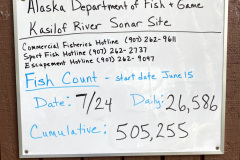 Alaska Department of Fish & Game
Kasilof River Sonar Site
Commercial Fisheries Hotline (907) 262-9611
Sport Fish Hotline (907) 262-2737
Escapement Hotline (907) 262-9097
Fish Count - start date June 15
Date: 7/24 Daily: 26,586
Cumulative: 505,255